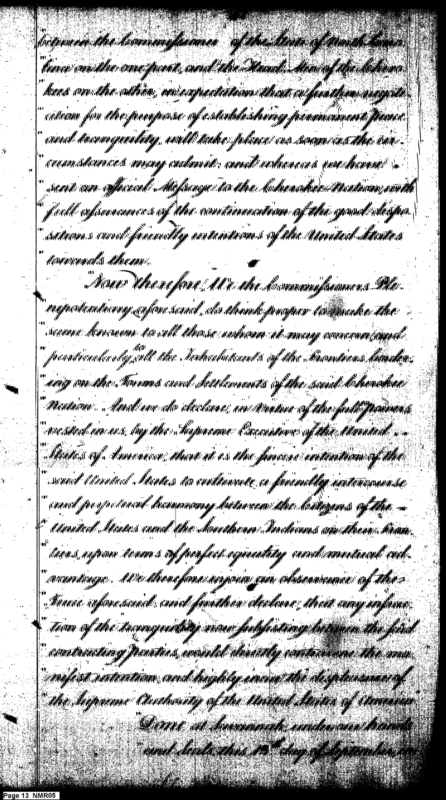 between the Commissioner of the State of North Caro
lina on the one part, and the Head Men of the Chero
kees on the other, in expectation that a further negoti
ation for the purpose of establishing permanent peace
and tranquility, will take place as soon as the cir
cumstances may admit: and whereas we have
sent an official Message to the Cherokee Nation, with
full assurances of the continuation of the good dispo
sitions and friendly intentions of the United States
towards them.
"Now therefore, We the Commissioners Ple-
nipotentiary aforesaid, do think proper to make the
same known to all those whom it may concern, and
particularly to all the Inhabitants of the Frontiers, border-
ing on the Towns and Settlements of the said Cherokee
Nation. And we do declare, in Virtue of the full powers
vested in us, by the Supreme Executive of the United
States of America, that it is the sincere intention of the
said United States to cultivate a friendly intercourse
and perpetual harmony between the Citizens of the
United States and the Southern Indians on their Fron
tiers, upon terms of perfect equality and mutual ad-
vantage. We therefore enjoin an observance of the
Truce aforesaid, and further declare, that any infrac
tion of the tranquility now subsisting between the said
contracting parties, would directly contravene the ma
nifest intention, and highly incur the displeasure of
the Supreme Authority of the United States of America
"Done at Savannah, under our hands
and Seals, this 13th day of September, in
Page 13 NMR05